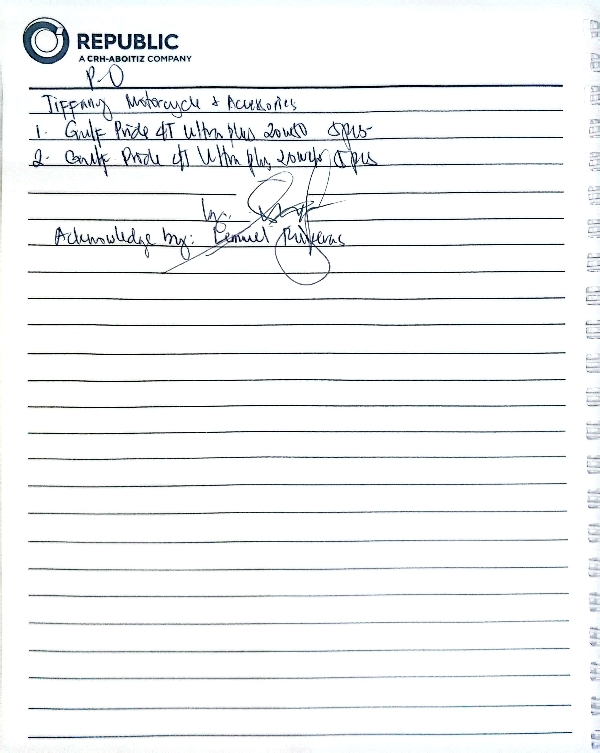 REPUBLIC
A CRH-ABOITIZ COMPANY
P.O
Tiffany Motorcycle & Accessories
1. Gulf Pride 4T Ultra plus 20w50 5pcs
2. Gulf Pride 4T Ultra plus 20w40 5pcs
by:
Acknowledge by: Lemuel